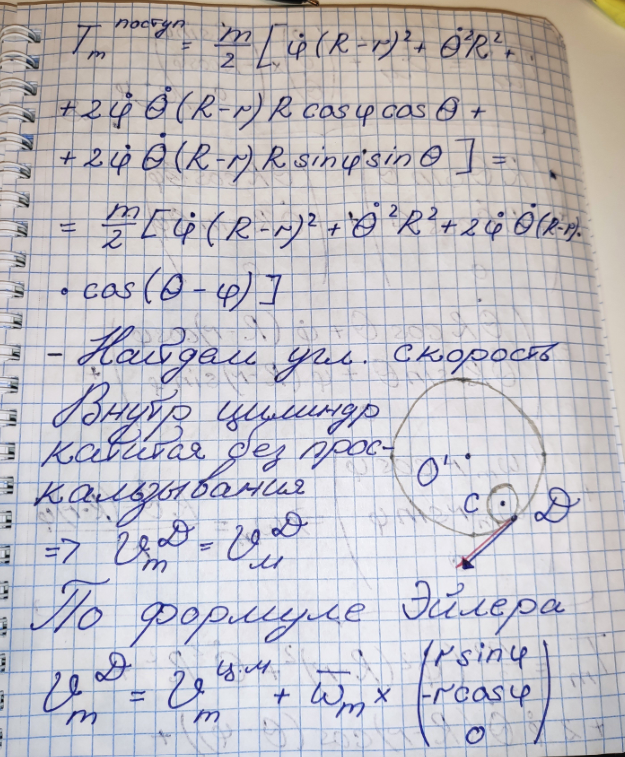 T_m^{поступ} = m/2 [φ̇(R-r)² + θ̇²R² +
+ 2φ̇ θ̇ (R-r) R cosφ cos θ +
+ 2φ̇ θ̇ (R-r) R sinφ sin θ ] =
= m/2 [φ̇ (R-r)² + θ̇²R² + 2φ̇ θ̇ (R-r)·
· cos(θ - φ)]
- Найдем угл. скорость
Внутр цилиндр
катится без прос-
кальзывания
O'
C
D
=> V_m^D = V_M^D
По формуле Эйлера
V_m^D = V_m^{ц.м} + ω̄_m × (r sinφ
-r cosφ
0)